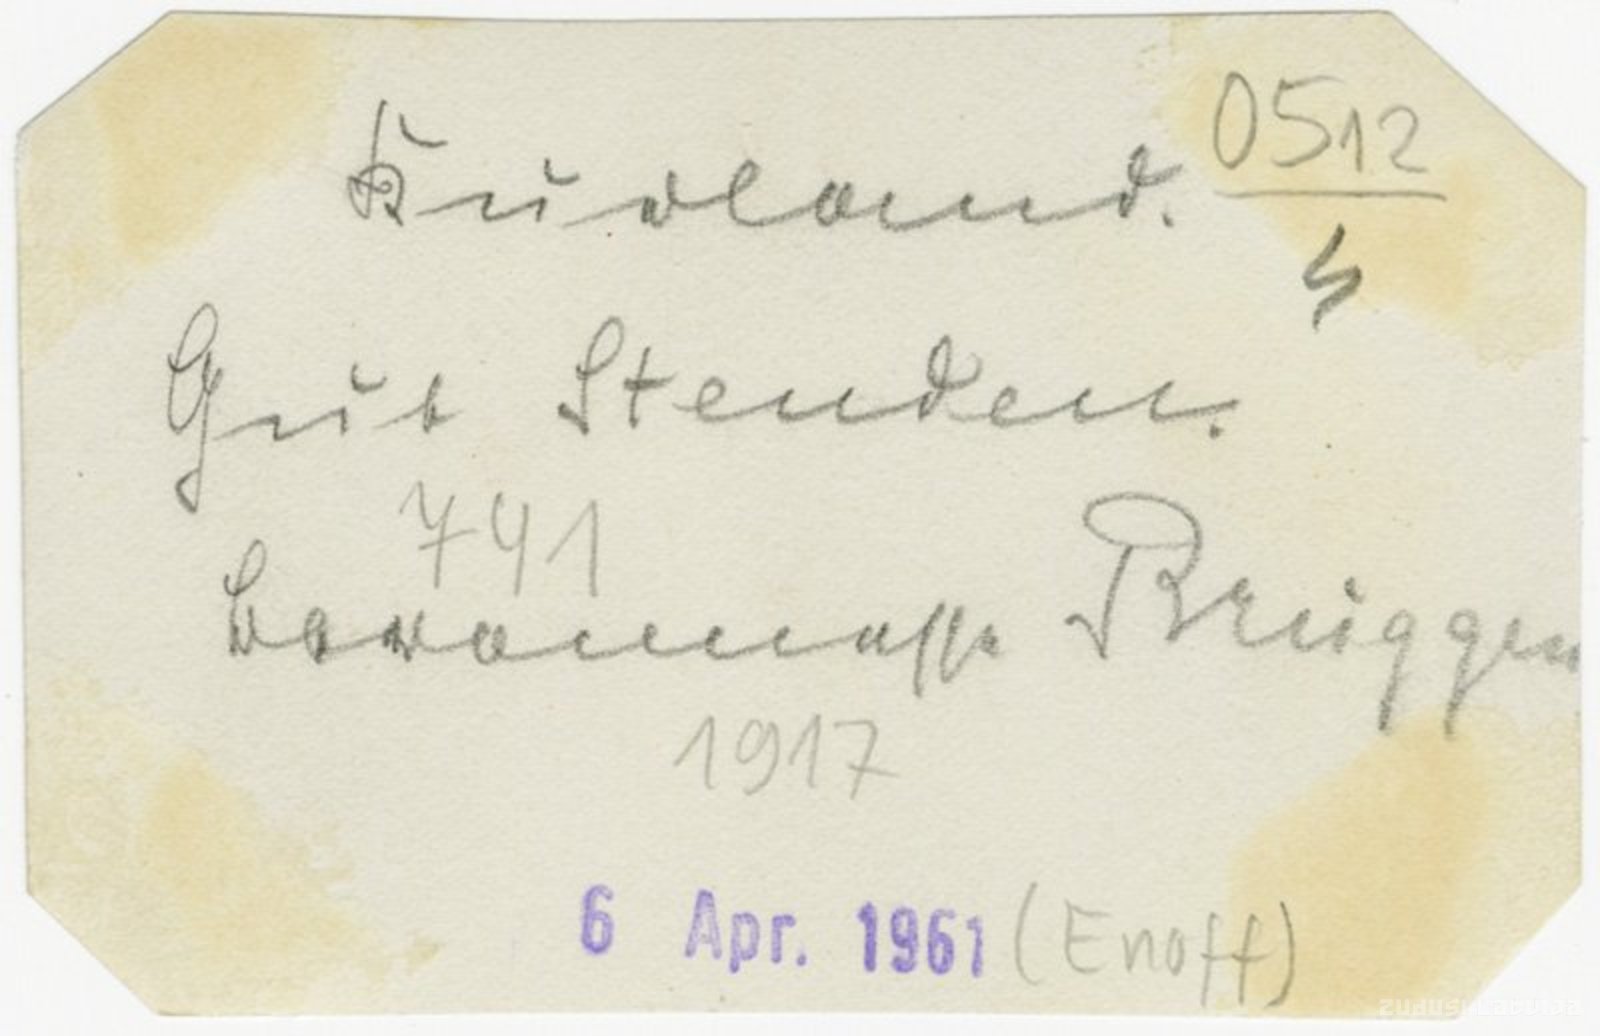 Kurland. 0512
4
Gut Stenden.
741
Baronnesse Brüggen
1917
6 Apr. 1961 (Enoff)
zudusilatvija